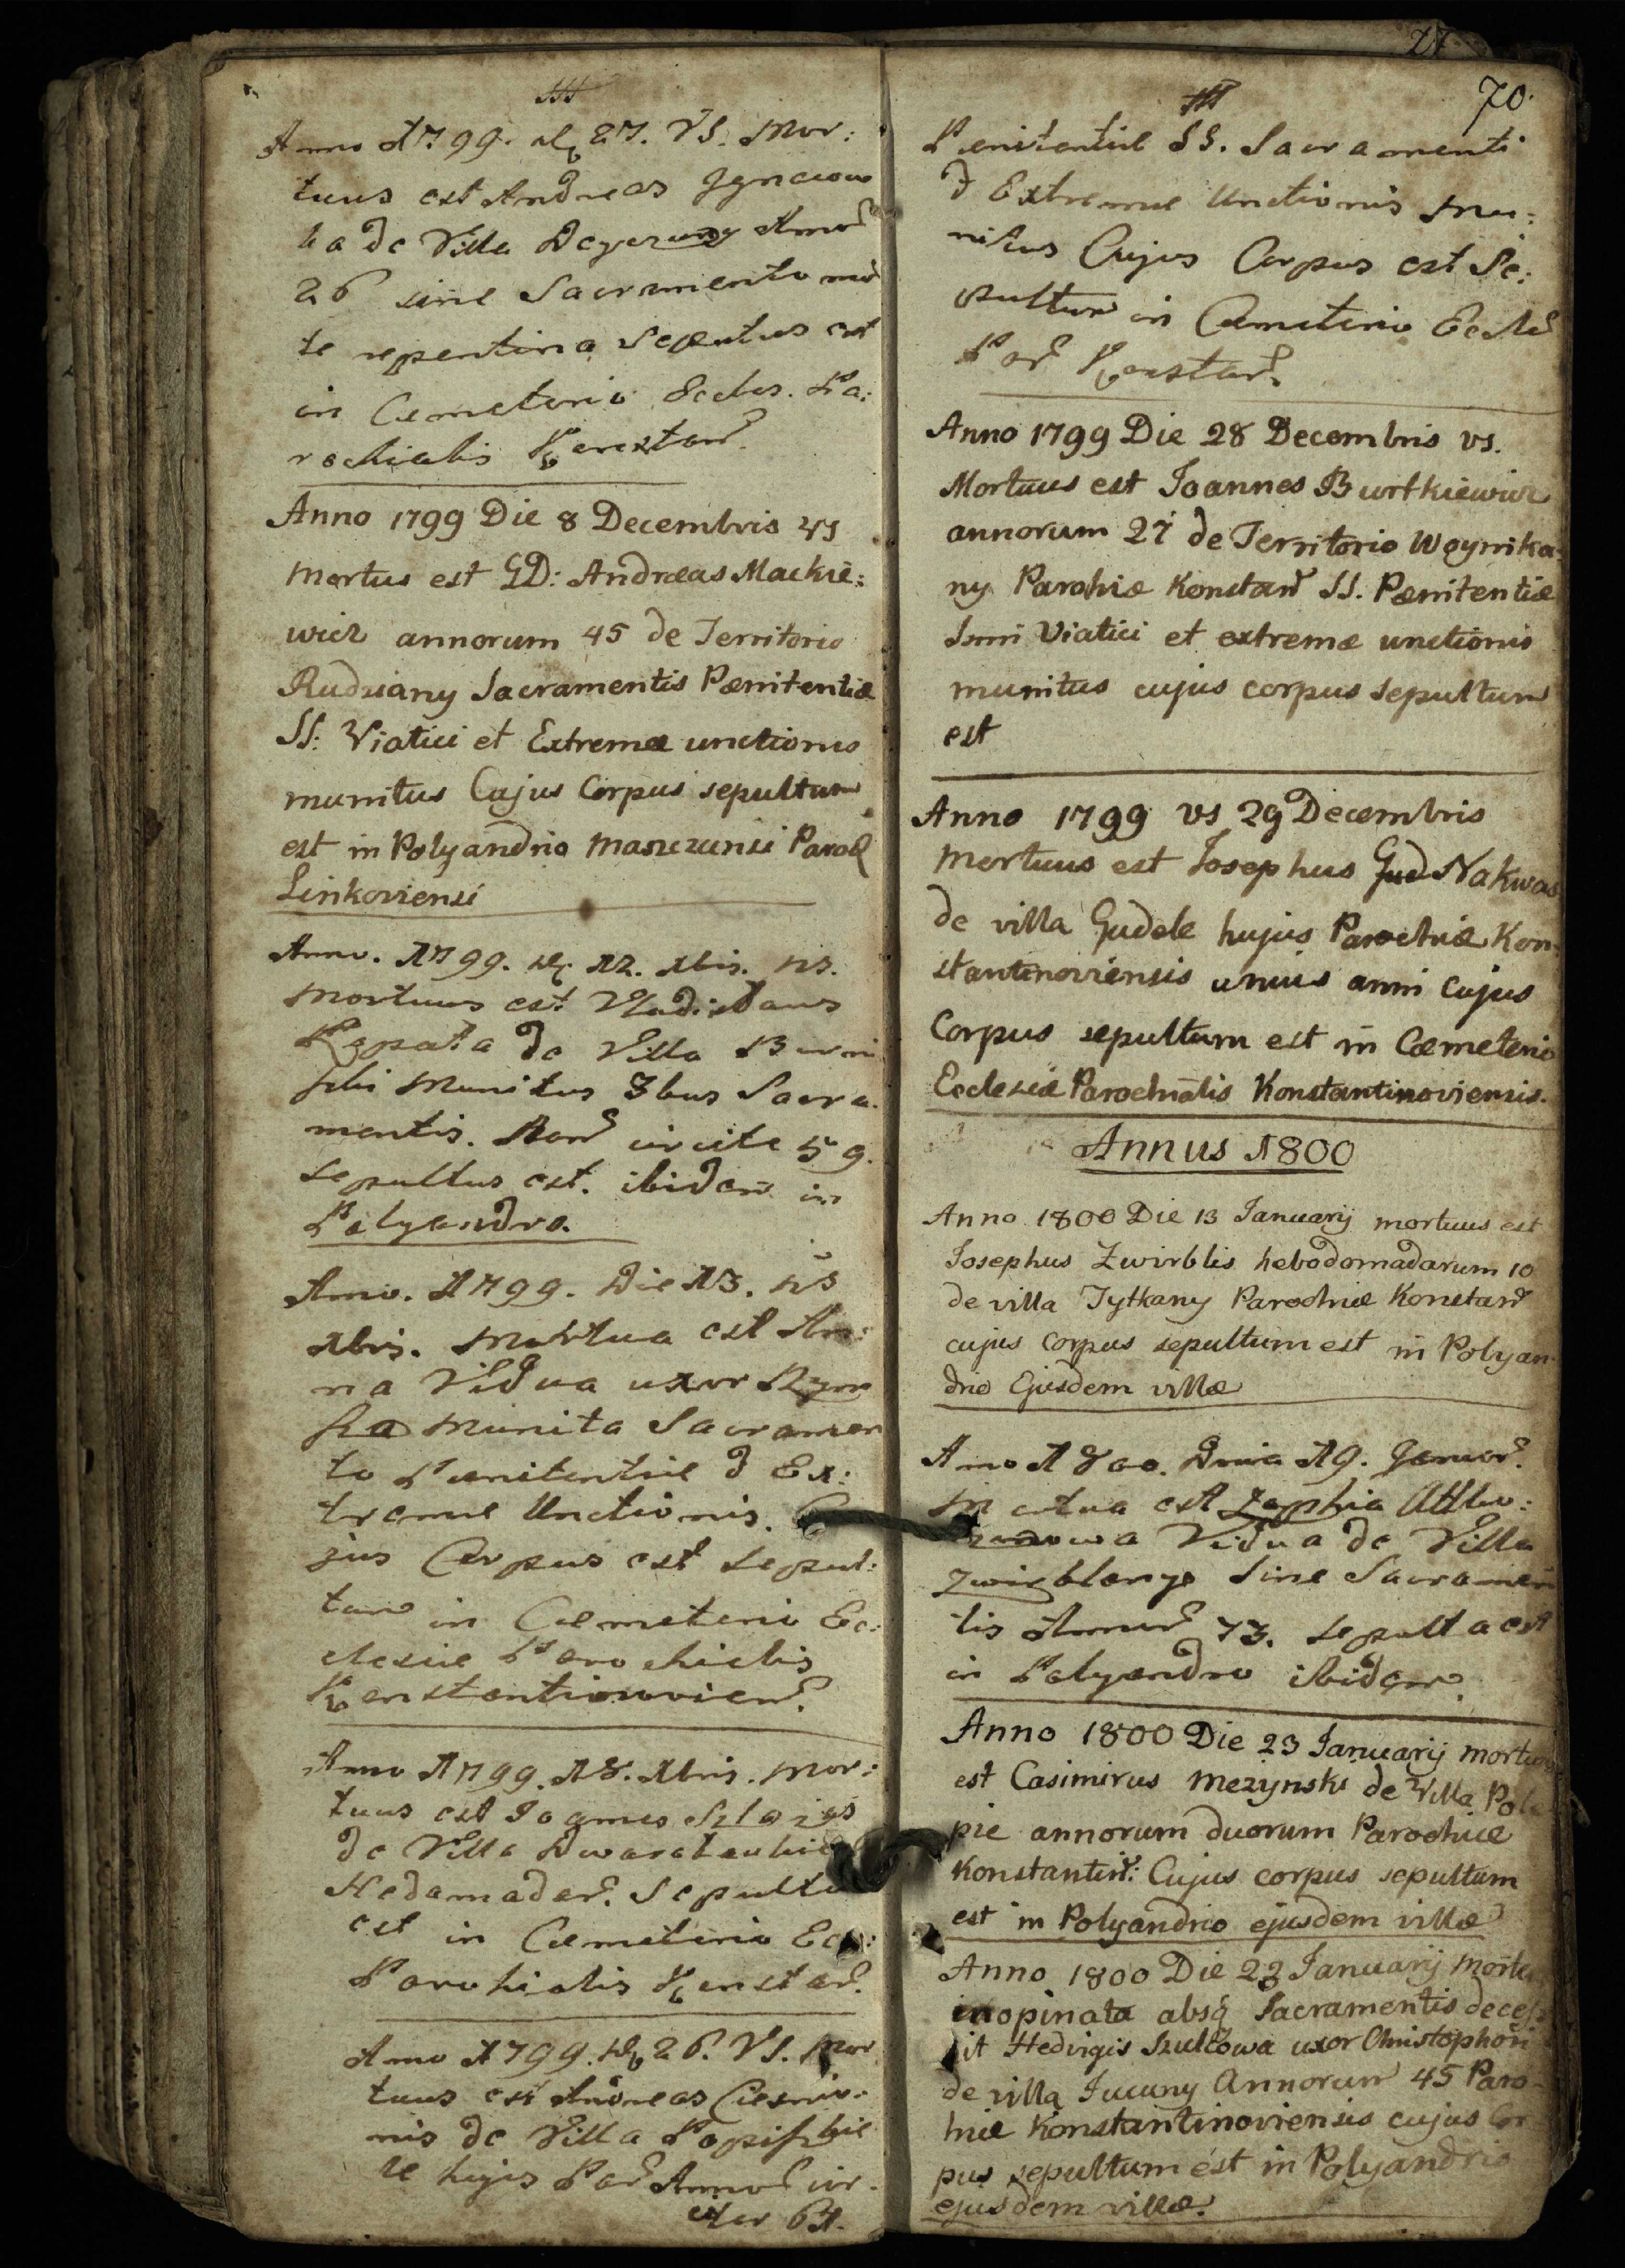 Anno 1799. d. 27. VS. Mor:
tuus est Andreas Ignacow
ka de Villa Anno
26 sine Sacramento mor
te repentina Sepultus est
in Cæmeterio Eccles. Pa:
rochialis Konstan
Anno 1799 Die 8 Decembris VS
Mortus est GD: Andræas Mackie:
wicz annorum 45 de Territorio
Rudziany Sacramentis Pænitentiæ
SS: Viatici et Extremæ unctionis
munitus Cujus Corpus sepultum
est in Polyandrio Paroch
Linkoviensi
Anno. 1799. d. 12. Xbris. ns.
Mortuus est Vladislaus
Łapata de Villa Burni
szki Munitus 3bus Sacra.
mentis. Ann circite 59.
Sepultus est. ibidem in
Polyandro.
Anno. 1799. Die 13. ns
Xbris. Mortua est An:
na Vidua uxor
ka Munita Sacramen
to Pænitentiæ & Ex:
tremæ Unctionis. Cu
jus Corpus est Sepul:
tum in Cæmeterio Ec:
clesiæ Parochialis
Konstantinovien.
Anno 1799. 18. Xbris. Mor:
tuus est Joannes
de Villa
Hedamadar. Sepultus
est in Cæmeterio Ecc:
Parochialis Konstan.
Anno 1799. d. 26. VS. Mor
tuus est Andreas
nis de Villa
le hujus Par Anno cir.
citer 61.
27
70.
Pænitentiæ SS. Sacramenti
& Extremæ Unctionis Mu:
nitus Cujus Corpus est Se:
pultum in Cæmeterio Eccle
Par Konstan.
Anno 1799 Die 28 Decembris VS.
Mortuus est Joannes Burtkiewicz
annorum 27 de Territorio Woynika-
ny Parohiæ Konstan SS. Pænitentiæ
Ssmi Viatici et extremæ unctionis
munitus cujus corpus sepultum
est
Anno 1799 VS 29 Decembris
Mortuus est Josephus Gud Nakwas
de villa Gudele hujus Parochiæ Kon-
stantinoviensis unius anni Cujus
Corpus sepultum est in Cæmeterio
Ecclesiæ Parochialis Konstantinoviensis.
Annus 1800
Anno 1800 Die 13 Januarij mortuus est
Josephus Zwirblis hebodomadarum 10
de villa Tytkany Parochiæ Konstan
cujus corpus sepultum est in Polyan-
drio Ejusdem villæ
Anno 1800. Dnia 19. Januar.
Mortua est Zophia
Vidua de Villa
Zwirblany Sine Sacramen
tis Annor 73. Sepulta est
in Polyandro ibidem.
Anno 1800 Die 23 Januarij mortuus
est Casimirus Mezynski de Villa Pole
pie annorum duorum Parochiæ
Konstantin: Cujus corpus sepultum
est in Polyandrio ejusdem villæ
Anno 1800 Die 23 Januarij morte
inopinata absq Sacramentis deces
it Hedvigis Szulcowa uxor Christophori
de villa Jucuny Annorum 45 Paro-
hiæ Konstantinoviensis cujus Cor
pus sepultum est in Polyandrio
ejusdem villæ.